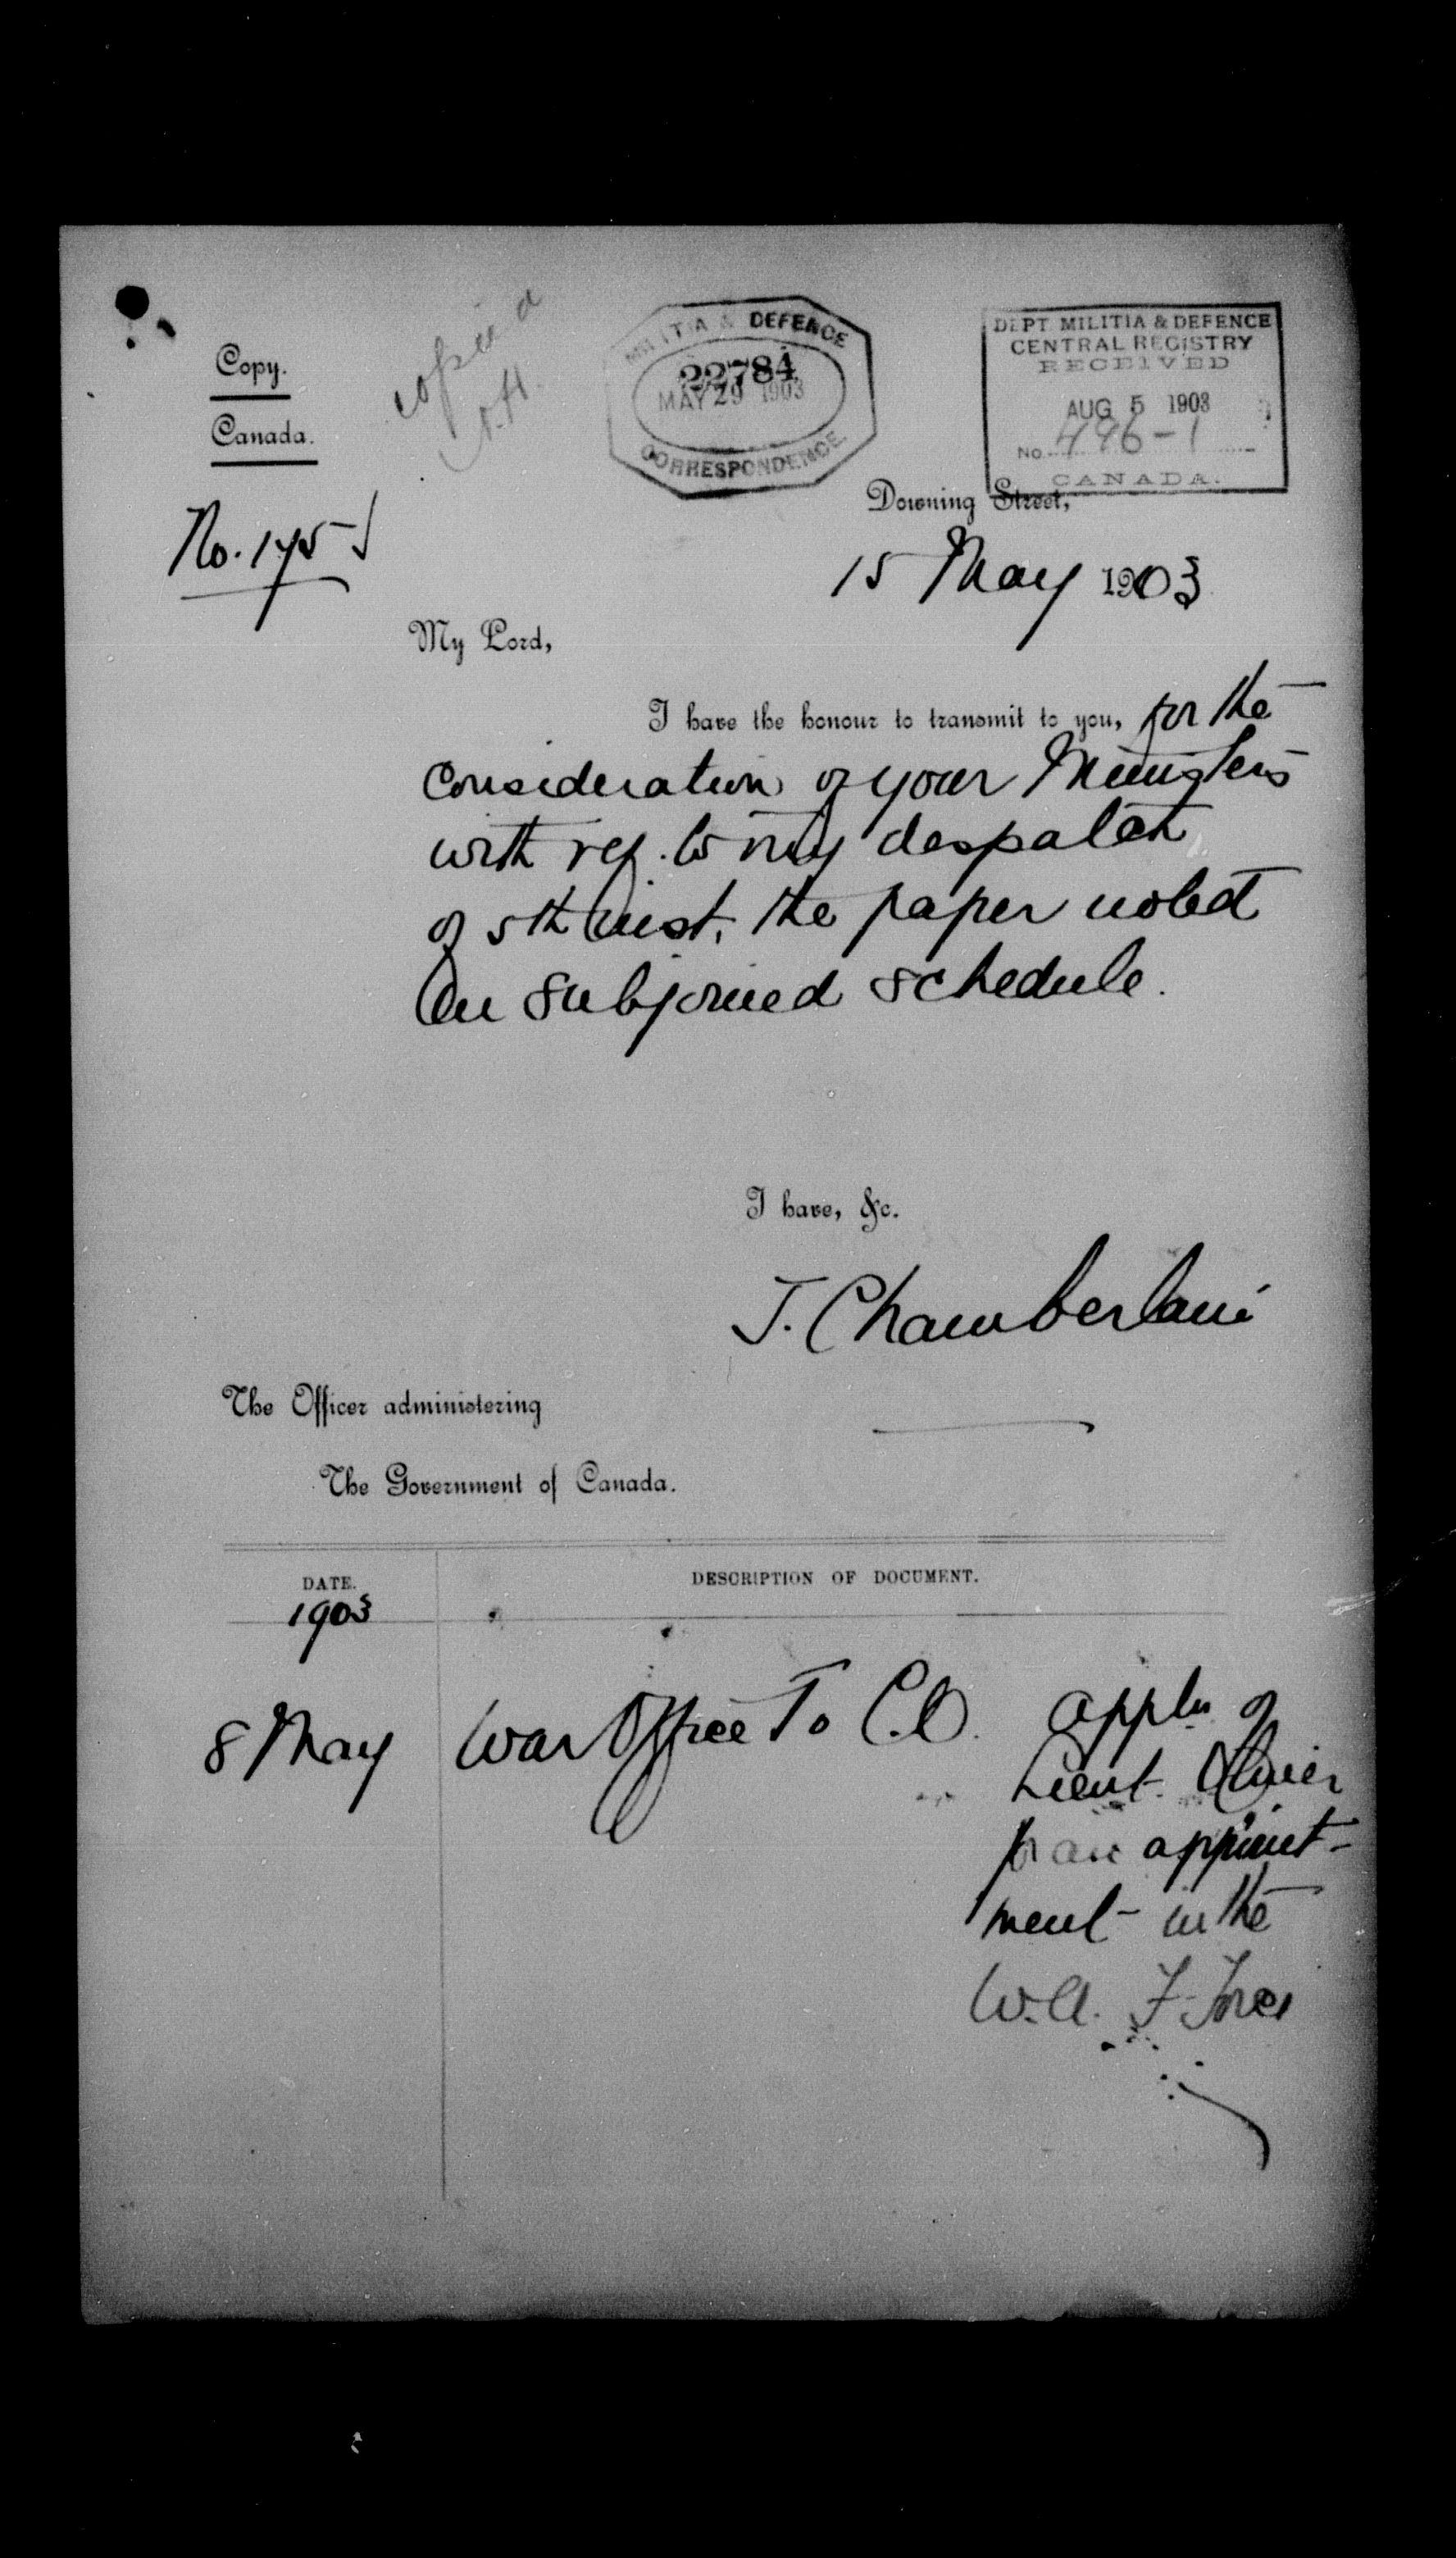 Copy.
Canada.
copied
A.H.
MILITIA & DEFENCE
22784
MAY 29 1903
CORRESPONDENCE
DEPT. MILITIA & DEFENCE
CENTRAL REGISTRY
RECEIVED
AUG 5 1903
No. 496-1
CANADA.
No. 175
Downing Street,
15 May 1903
My Lord,
I have the honour to transmit to you, for the
consideration of your Ministers
with ref. to my despatch
of 5th inst. the paper noted
in subjoined schedule.
I have, &c.
J. Chamberlain
The Officer administering
The Government of Canada.
DATE.
DESCRIPTION OF DOCUMENT.
1903
8 May
War Office To C.O.
Appln of
Lieut. Olivier
for an appoint-
ment in the
W.A. F. Force